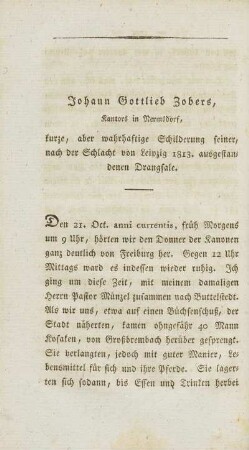 Johann Gottlieb Zobers,
Kantors in Nermsdorf,
kurze, aber wahrhaftige Schilderung seiner,
nach der Schlacht von Leipzig 1813. ausgestan-
denen Drangsale.
Den 21. Oct. anni currentis, früh Morgens
um 9 Uhr, hörten wir den Donner der Kanonen
ganz deutlich von Freiburg her. Gegen 12 Uhr
Mittags ward es indessen wieder ruhig. Ich
ging um diese Zeit, mit meinem damaligen
Herrn Pastor Münzel zusammen nach Buttelstedt.
Als wir uns, etwa auf einen Büchsenschuß, der
Stadt näherten, kamen ohngefähr 40 Mann
Kosaken, von Großbrembach herüber gesprengt.
Sie verlangten, jedoch mit guter Manier, Le-
bensmittel für sich und ihre Pferde. Sie lager-
ten sich sodann, bis Essen und Trinken herbei